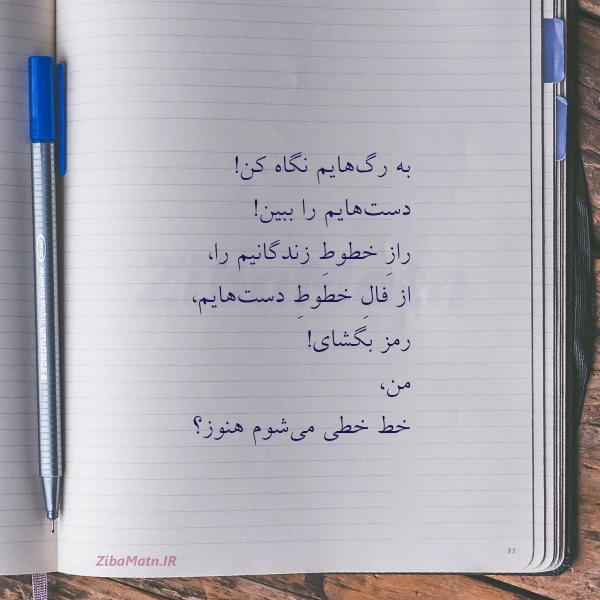 به رگ‌هایم نگاه کن!
دست‌هایم را ببین!
رازِ خطوطِ زندگانیم را،
از فالِ خطوطِ دست‌هایم،
رمز بگشای!
من،
خط خطی می‌شوم هنوز؟
77
ZibaMatn.IR
ZibaMatn